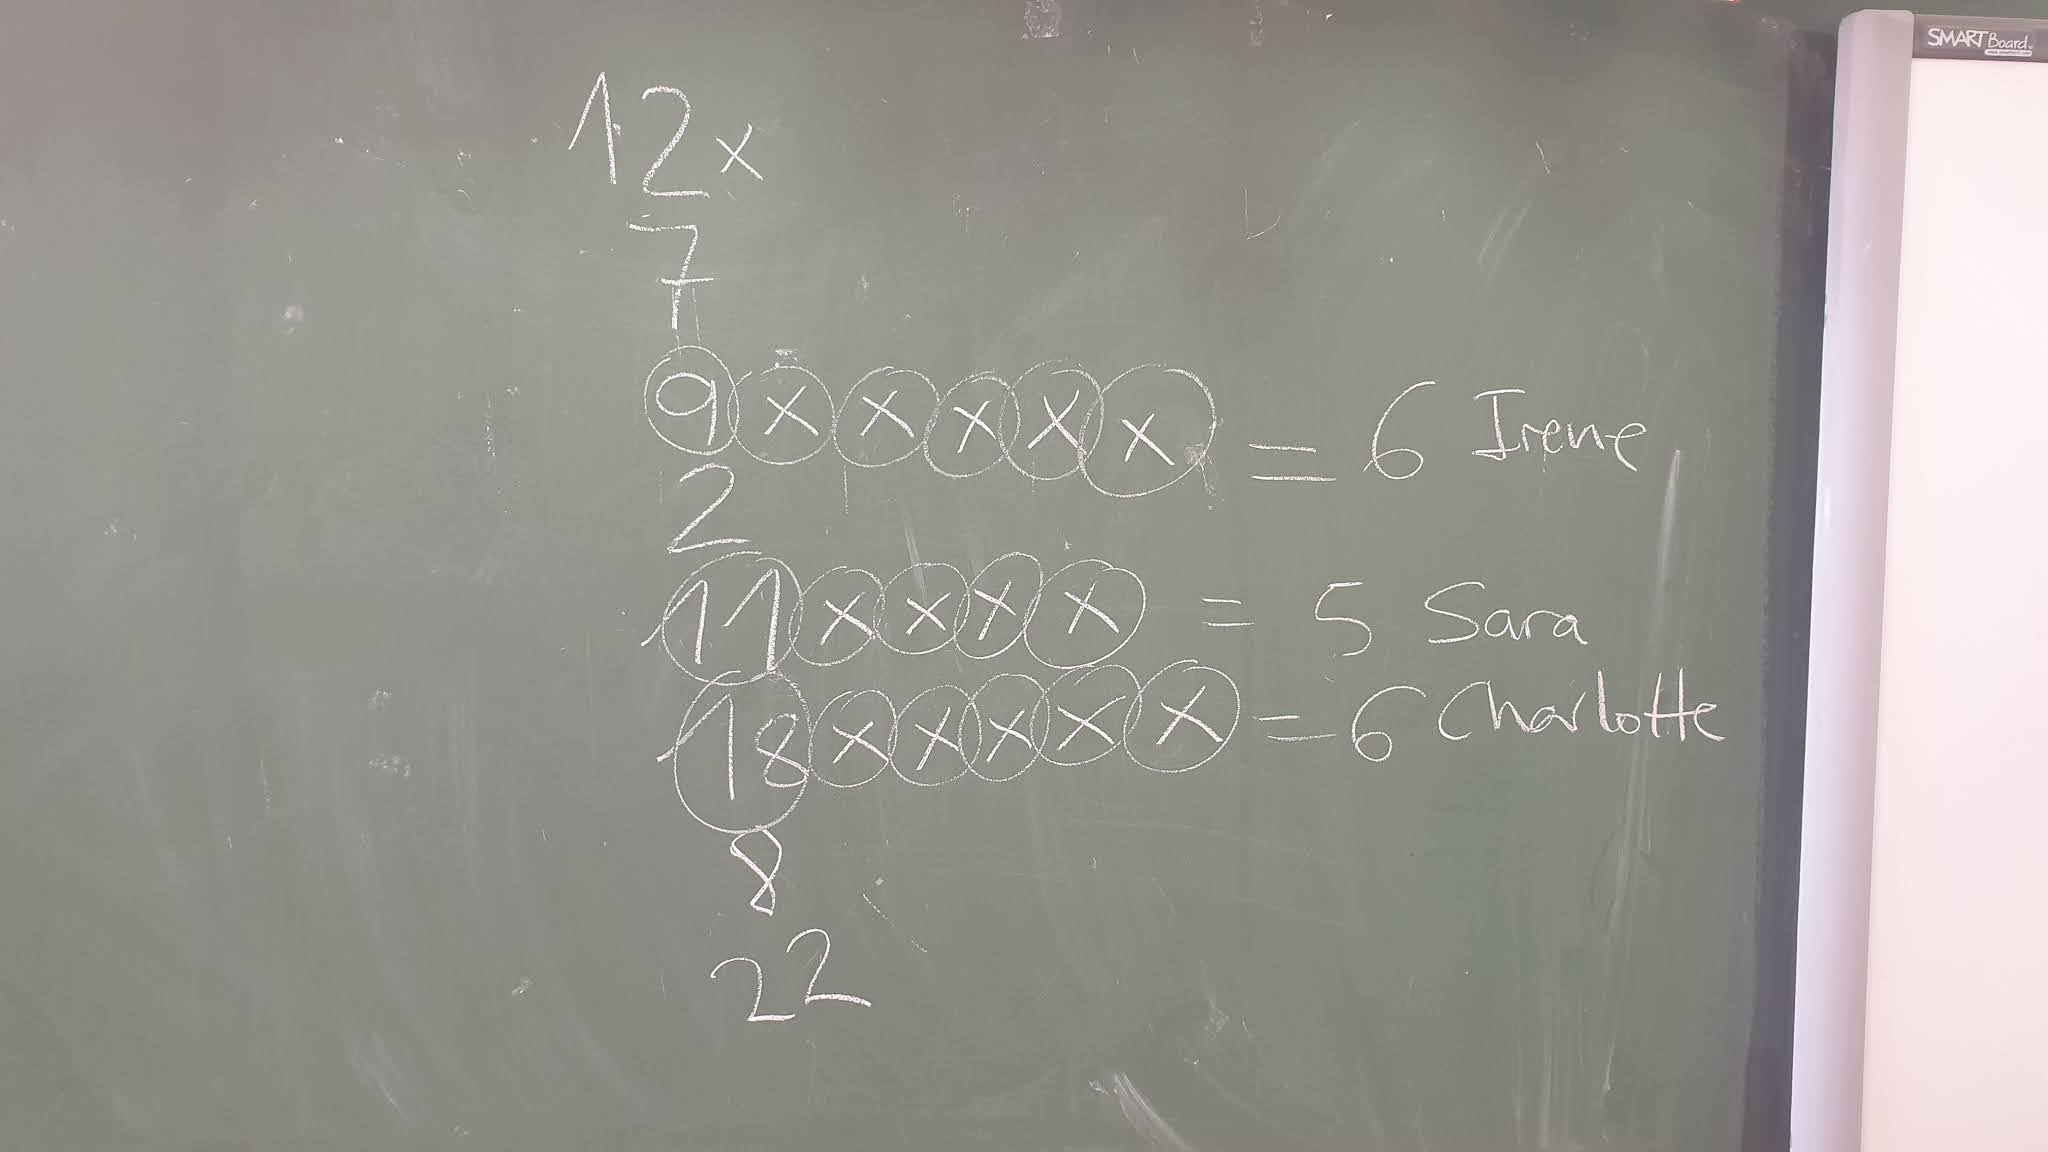 SMART Board
12x
7
9xxxxx = 6 Irene
2
11xxxx = 5 Sara
18xxxxx = 6 Charlotte
8
22